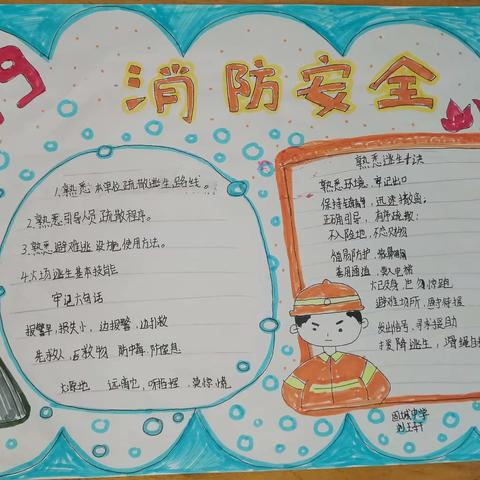 119
消防安全
1.熟悉本单位疏散逃生路线。
2.熟悉引导人员疏散程序。
3.熟悉避难逃设施使用方法。
4.火场逃生基本技能
牢记六句话
报警早,损失小,边报警,边扑救
先救人,后救物 防中毒,防窒息
听指挥,莫惊慌
熟悉逃生十法
熟悉环境,牢记出口
保持镇静,迅速撤离。
正确引导,有序疏散,
不入险地,不恋财物
简易防护,
善用通道,莫入电梯
火已及身,已勿惊跑
避难场所,固守待援
发出信号,寻求援助
缓降逃生,滑绳自
固城中学
刘玉轩